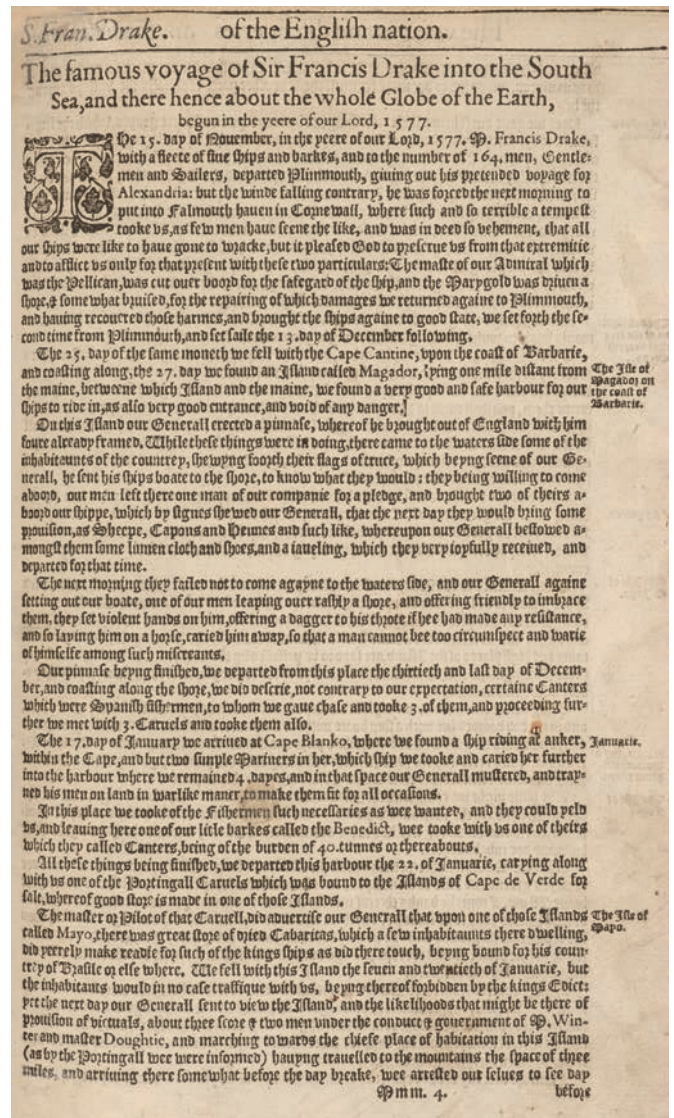 S. Fran. Drake. of the Engliſh nation.
The famous voyage of Sir Francis Drake into the South
Sea, and there hence about the whole Globe of the Earth,
begun in the yeere of our Lord, 1577.
THe 15. day of Nouember, in the yeere of our Lord, 1577. M. Francis Drake,
with a fleete of fiue ſhips and barkes, and to the number of 164. men, Gentle-
men and Sailers, departed Plimmouth, giuing out his pretended voyage for
Alexandria: but the winde falling contrary, he was forced the next morning to
put into Falmouth hauen in Cornewall, where ſuch and ſo terrible a tempeſt
tooke vs, as few men haue ſeene the like, and was in deed ſo vehement, that all
our ſhips were like to haue gone to wracke, but it pleaſed God to preſerue vs from that extremitie
and to afflict vs only for that preſent with theſe two particulars: The maſte of our Admiral which
was the Pellican, was cut ouer boord for the ſafegard of the ſhip, and the Marygold was driuen a
ſhore, & ſome what bruiſed, for the repairing of which damages we returned againe to Plimmouth,
and hauing recouered thoſe harmes, and brought the ſhips againe to good ſtate, we ſet forth the ſe-
cond time from Plimmouth, and ſet ſaile the 13. day of December following.
The 25. day of the ſame moneth we fell with the Cape Cantine, vpon the coaſt of Barbarie,
and coaſting along, the 27. day we found an Iſland called Magador, lying one mile diſtant from
the maine, betweene which Iſland and the maine, we found a very good and ſafe harbour for our
ſhips to ride in, as alſo very good entrance, and void of any danger.
The Iſle of
Magador on
the coaſt of
Barbarie.
On this Iſland our Generall erected a pinnaſe, whereof he brought out of England with him
foure already framed. While theſe things were in doing, there came to the waters ſide ſome of the
inhabitaunts of the countrey, ſhewyng foorth their flags of truce, which beyng ſeene of our Ge-
nerall, he ſent his ſhips boate to the ſhore, to know what they would: they being willing to come
aboord, out men left there one man of our companie for a pledge, and brought two of theirs a-
boord our ſhippe, which by ſignes ſhewed our Generall, that the next day they would bring ſome
prouiſion, as Sheepe, Capons and Hennes and ſuch like, whereupon our Generall beſtowed a-
mongſt them ſome linnen cloth and ſhoes, and a iaueling, which they very ioyfully receiued, and
departed for that time.
The next morning they failed not to come agayne to the waters ſide, and our Generall againe
ſetting out our boate, one of our men leaping ouer raſhly a ſhore, and offering friendly to imbrace
them, they ſet violent hands on him, offering a dagger to his throte if hee had made any reſiſtance,
and ſo laying him on a horſe, caried him away, ſo that a man cannot bee too circumſpect and warie
of himſelfe among ſuch miſcreants.
Our pinnaſe beyng finiſhed, we departed from this place the thirtieth and laſt day of Decem-
ber, and coaſting along the ſhore, we did deſcrie, not contrary to our expectation, certaine Canters
which were Spaniſh fiſhermen, to whom we gaue chaſe and tooke 3. of them, and proceeding fur-
ther we met with 3. Caruels and tooke them alſo.
The 17. day of January we arriued at Cape Blanko, where we found a ſhip riding at anker,
Januarie.
within the Cape, and but two ſimple Mariners in her, which ſhip we tooke and caried her further
into the harbour where we remained 4. dayes, and in that ſpace our Generall muſtered, and tray-
ned his men on land in warlike maner, to make them fit for all occaſions.
In this place we tooke of the Fiſhermen ſuch neceſſaries as wee wanted, and they could yeld
vs, and leauing here one of our litle barkes called the Benedict, wee tooke with vs one of theirs
which they called Canters, being of the burden of 40. tunnes or thereabouts.
All theſe things being finiſhed, we departed this harbour the 22. of Januarie, carying along
with vs one of the Portingall Caruels which was bound to the Iſlands of Cape de Verde for
ſalt, whereof good ſtore is made in one of thoſe Iſlands.
The maſter or Pilot of that Caruell, did aduertiſe our Generall that vpon one of thoſe Iſlands
The Iſle of
Mayo.
called Mayo, there was great ſtore of dried Cabaritas, which a few inhabitaunts there dwelling,
did yeerely make readie for ſuch of the kings ſhips as did there touch, beyng bound for his coun-
trey of Braſile or elſe where. We fell with this Iſland the ſeuen and twentieth of Januarie, but
the inhabitants would in no caſe traffique with vs, beyng thereof forbidden by the kings Edict:
yet the next day our Generall ſent to view the Iſland, and the likelihoods that might be there of
prouiſion of victuals, about three ſcore & two men vnder the conduct & gouernment of M. Win-
ter and maſter Doughtie, and marching towards the chiefe place of habitation in this Iſland
(as by the Portingall wee were informed) hauyng trauelled to the mountains the ſpace of three
miles, and arriuing there ſomewhat before the day breake, wee arreſted our ſelues to ſee day
Mmm. 4. before